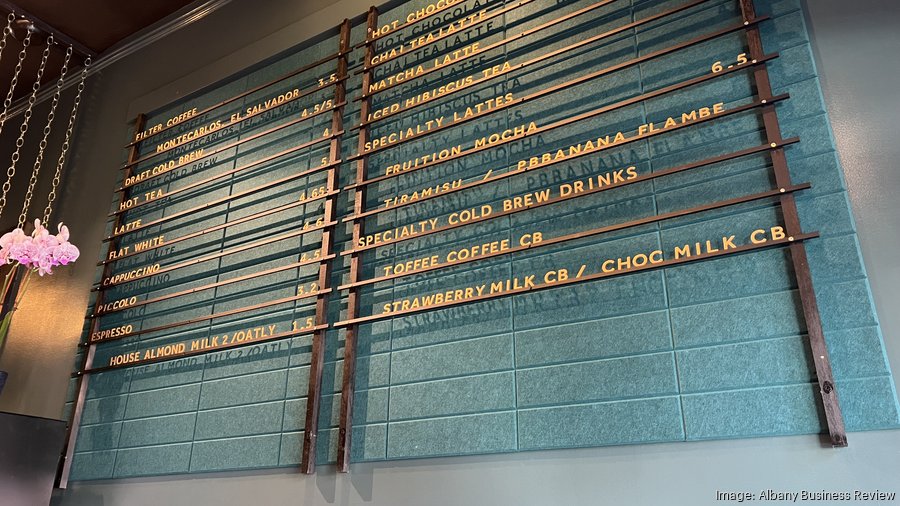 FILTER COFFEE 3.5
MONTECARLOS, EL SALVADOR
DRAFT COLD BREW 4.5/5.
HOT TEA 4
LATTE 5
FLAT WHITE 4.65
CAPPUCCINO 4.6
PICCOLO 4.5
ESPRESSO 3.2
HOUSE ALMOND MILK 2 /OATLY 1.5
HOT CHOCOL
CHAI TEA LATTE
MATCHA LATTE
ICED HIBISCUS TEA
SPECIALTY LATTES 6.5.
FRUITION MOCHA
TIRAMISU / P.BBANANA FLAMBE
SPECIALTY COLD BREW DRINKS
TOFFEE COFFEE CB
STRAWBERRY MILK CB / CHOC MILK CB.
Image: Albany Business Review